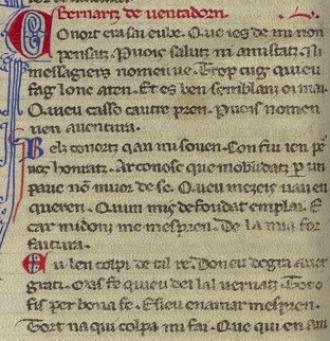 Bernartz de uentadorn.
Conort era sai eu be. Que ies de mi non
pensatz. Pueis salutz ni amistatz. Ni
messagiers nomenue. Trop cug quieu
fag lonc aten. Et es ben semblanz oi mai.
Quieu casso cautre pren. Pueis nomen
uen auentura.
Bels conortz qan mi souen. Con fui ien per
uos honratz. Ar conosc que moblidatz per un
pauc non muor de se. Queu mezeis uau en
queren. Quim mes de foudat em plai. E
car midonz me mespren. De la mia for
faitura.
Eu len colpi de tal re. Don eu degra auer
gratz. Mas fe quieu dei lal uernatz. Tot o
fis per bona fe. E sieu en amar mespren.
Tort na qui colpa mi fai. Que qui en am